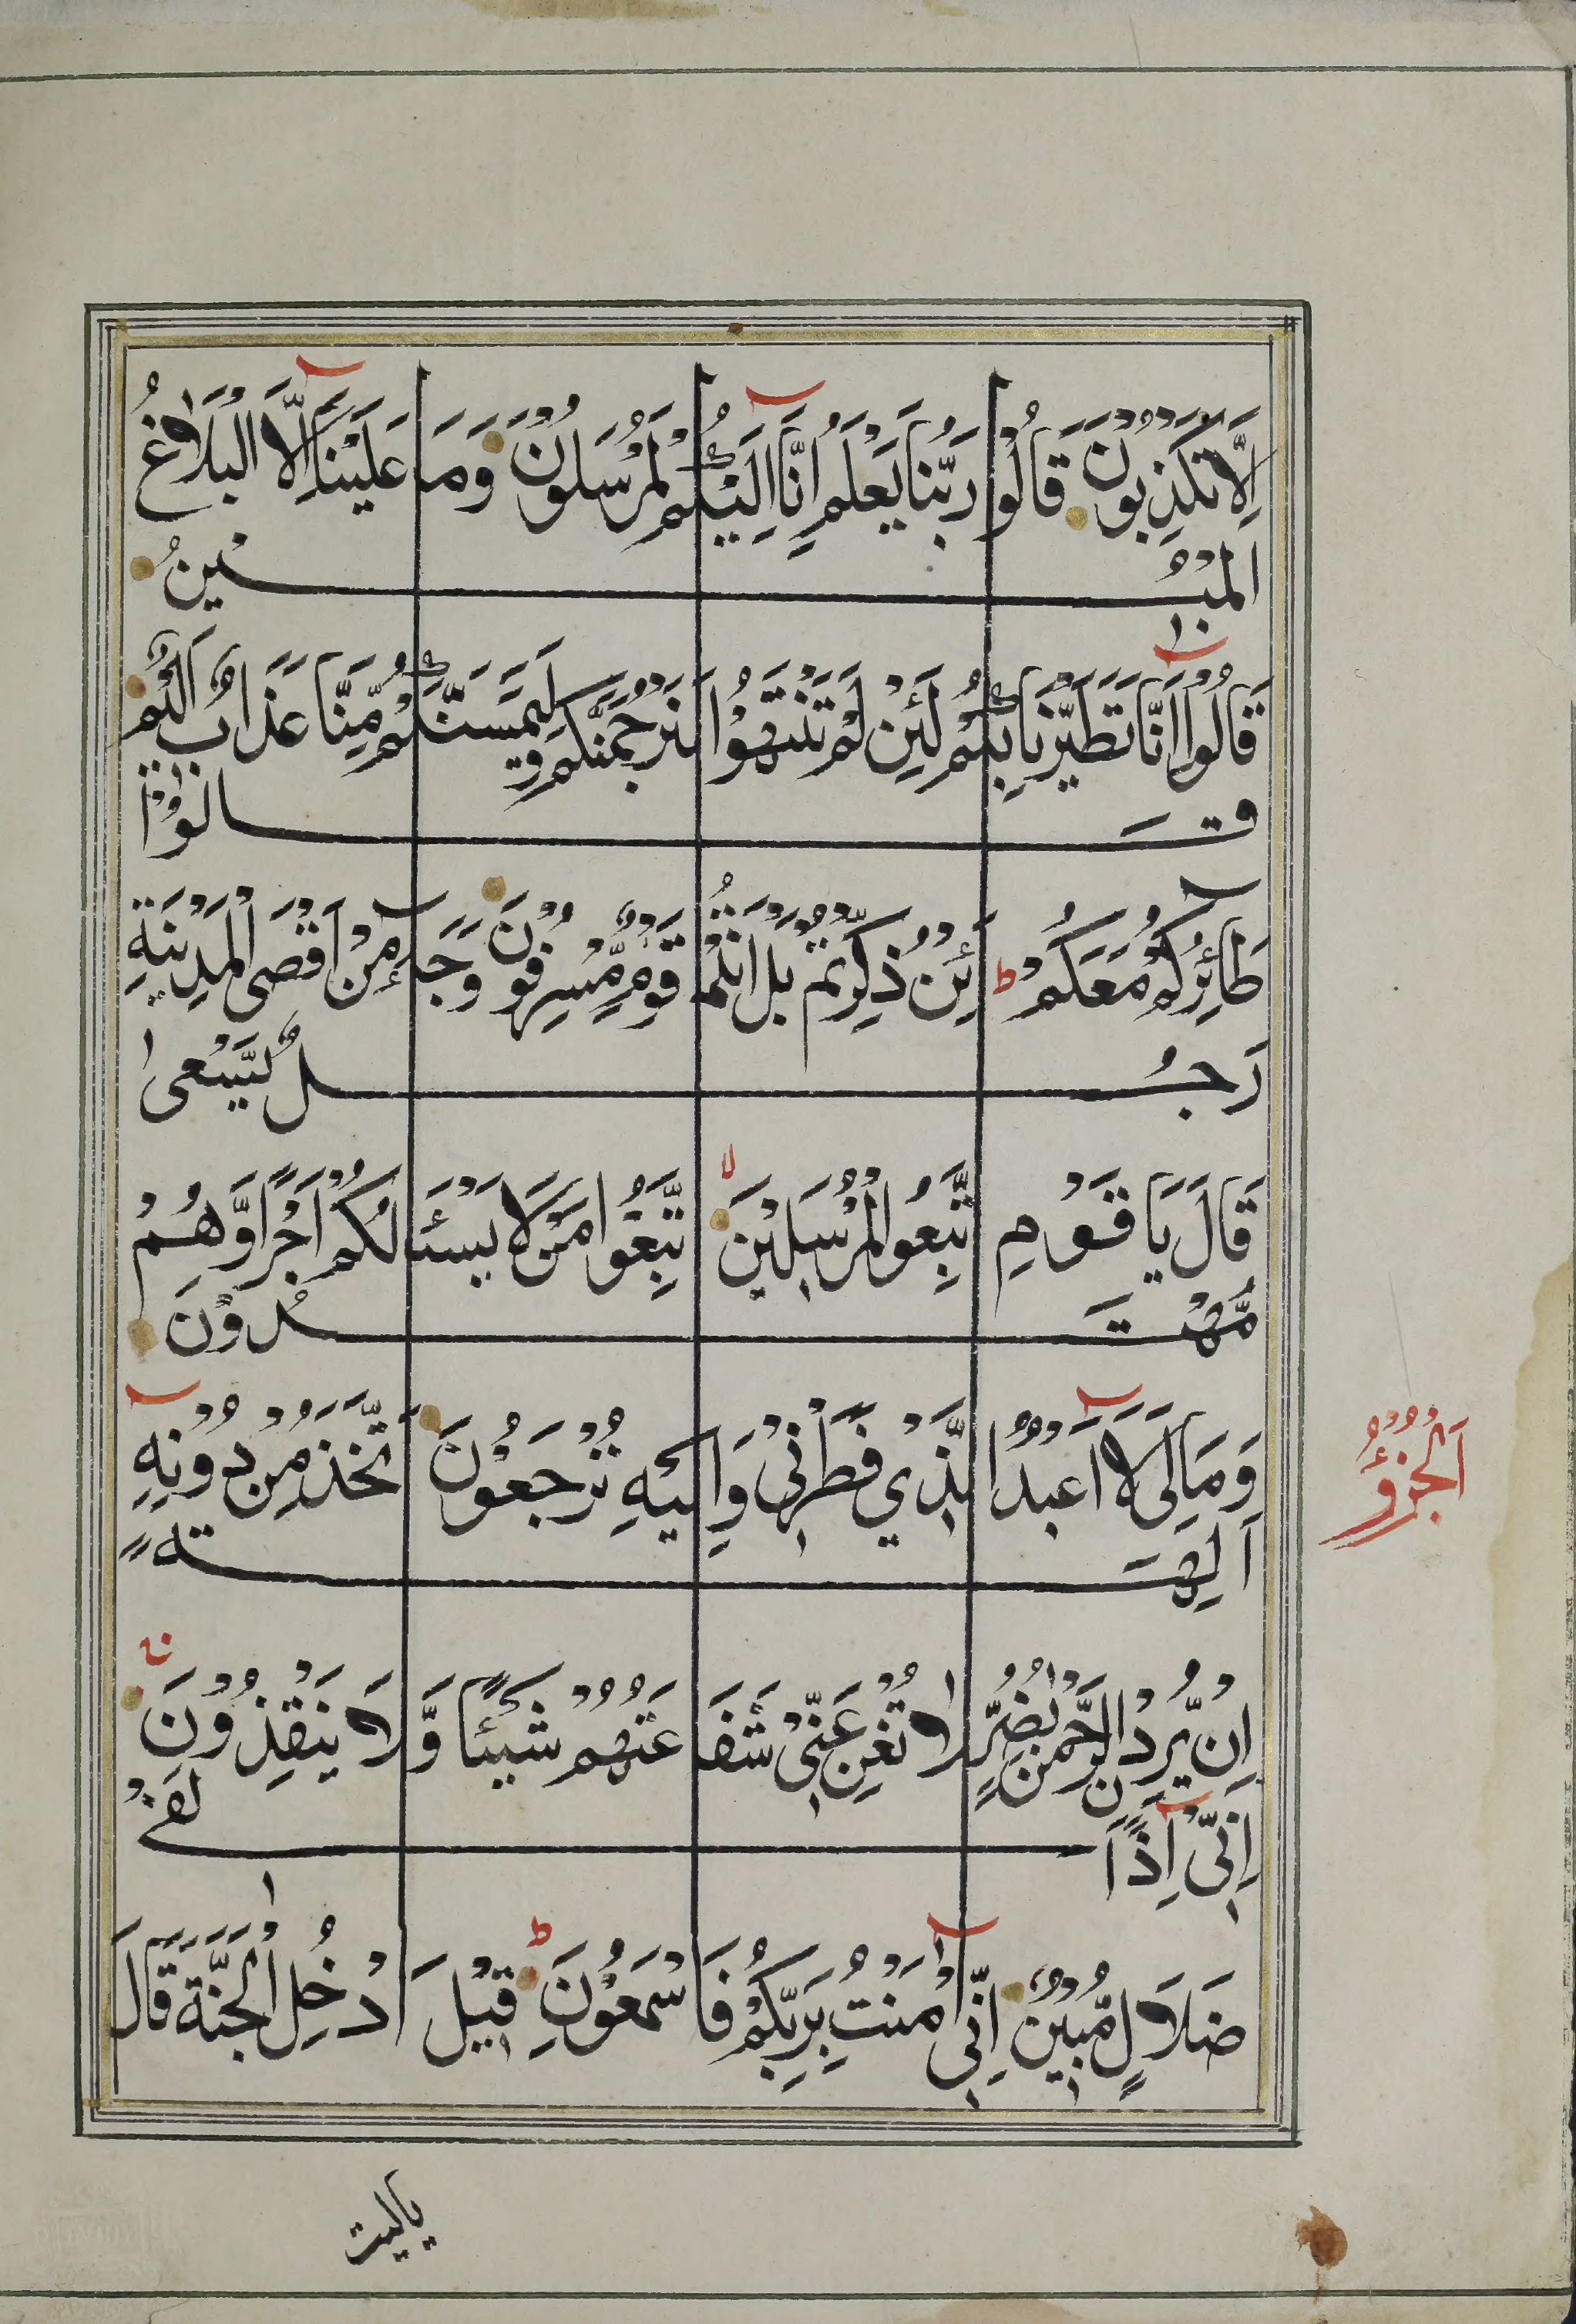 اِلَّا تَكْذِبُوْنَ قَالُوْا رَبُّنَا يَعْلَمُ اِنَّا اِلَيْكُمْ لَمُرْسَلُوْنَ وَمَا عَلَيْنَا اِلَّا الْبَلَاغُ
الْمُبِيْنُ
قَالُوْا اِنَّا تَطَيَّرْنَا بِكُمْ لَئِنْ لَمْ تَنْتَهُوْا لَنَرْجُمَنَّكُمْ وَلَيَمَسَّنَّكُمْ مِّنَّا عَذَابٌ اَلِيْمٌ
قَالُوْا
طَائِرُكُمْ مَعَكُمْ اَئِنْ ذُكِّرْتُمْ بَلْ اَنْتُمْ قَوْمٌ مُّسْرِفُوْنَ وَجَاءَ مِنْ اَقْصَى الْمَدِيْنَةِ
رَجُلٌ يَّسْعٰى
قَالَ يَا قَوْمِ اتَّبِعُوا الْمُرْسَلِيْنَ اتَّبِعُوْا مَنْ لَا يَسْئَلُكُمْ اَجْرًا وَّهُمْ
مُّهْتَدُوْنَ
وَمَا لِىَ لَا اَعْبُدُ الَّذِيْ فَطَرَنِيْ وَاِلَيْهِ تُرْجَعُوْنَ ءَاَتَّخِذُ مِنْ دُوْنِهِ
اٰلِهَةً
اِنْ يُّرِدْنِ الرَّحْمٰنُ بِضُرٍّ لَا تُغْنِ عَنِّيْ شَفَاعَتُهُمْ شَيْئًا وَّلَا يُنْقِذُوْنَ
اِنِّيْ اِذًا لَفِيْ
ضَلَالٍ مُّبِيْنٍ اِنِّيْ اٰمَنْتُ بِرَبِّكُمْ فَاسْمَعُوْنِ قِيْلَ ادْخُلِ الْجَنَّةَ قَالَ
اَلْجُزْؤُ
ياليت